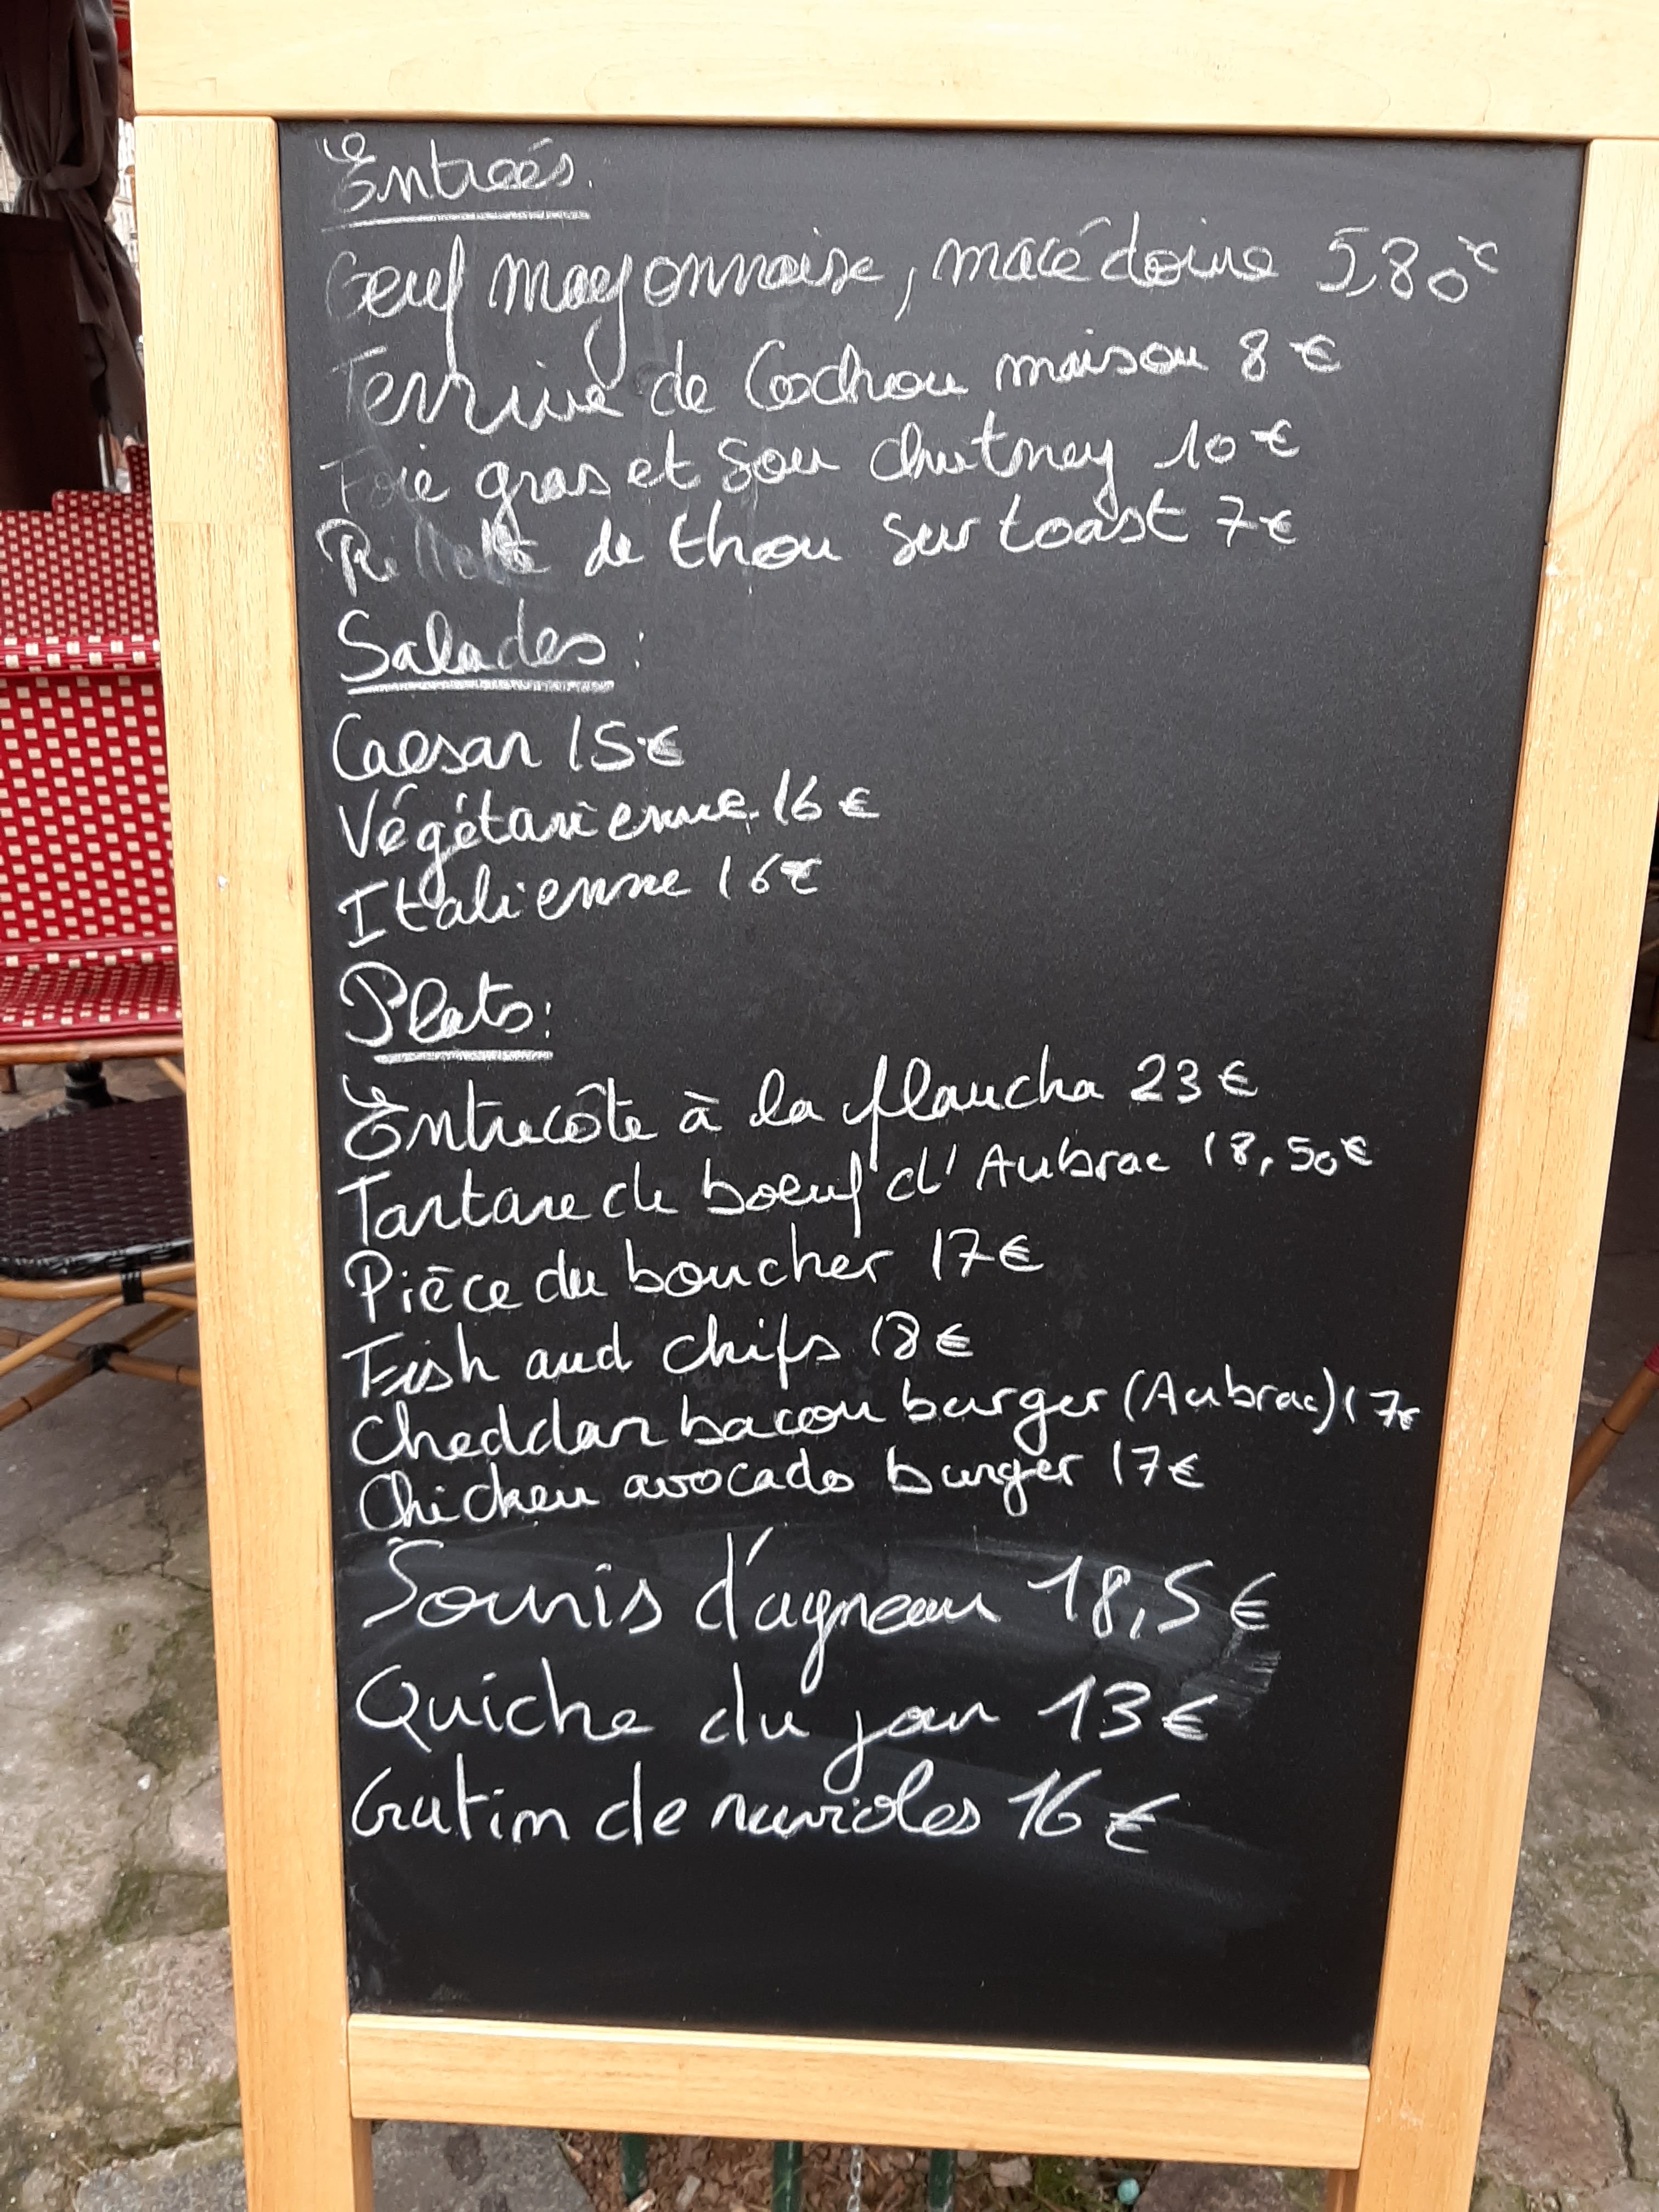 Entrées.
Oeuf mayonnaise, macédoine 5,80€
Terrine de Cochon maison 8€
Foie gras et son chutney 10€
Rillette de thon sur toast 7€
Salades :
Caesar 15€
Végétarienne 16€
Italienne 16€
Plats :
Entrecôte à la plancha 23€
Tartare de boeuf d'Aubrac 18,50€
Pièce du boucher 17€
Fish and chips 18€
Cheddar bacon burger (Aubrac) 17€
Chicken avocado burger 17€
Souris d'agneau 18,5€
Quiche du jour 13€
Gratin de ravioles 16€